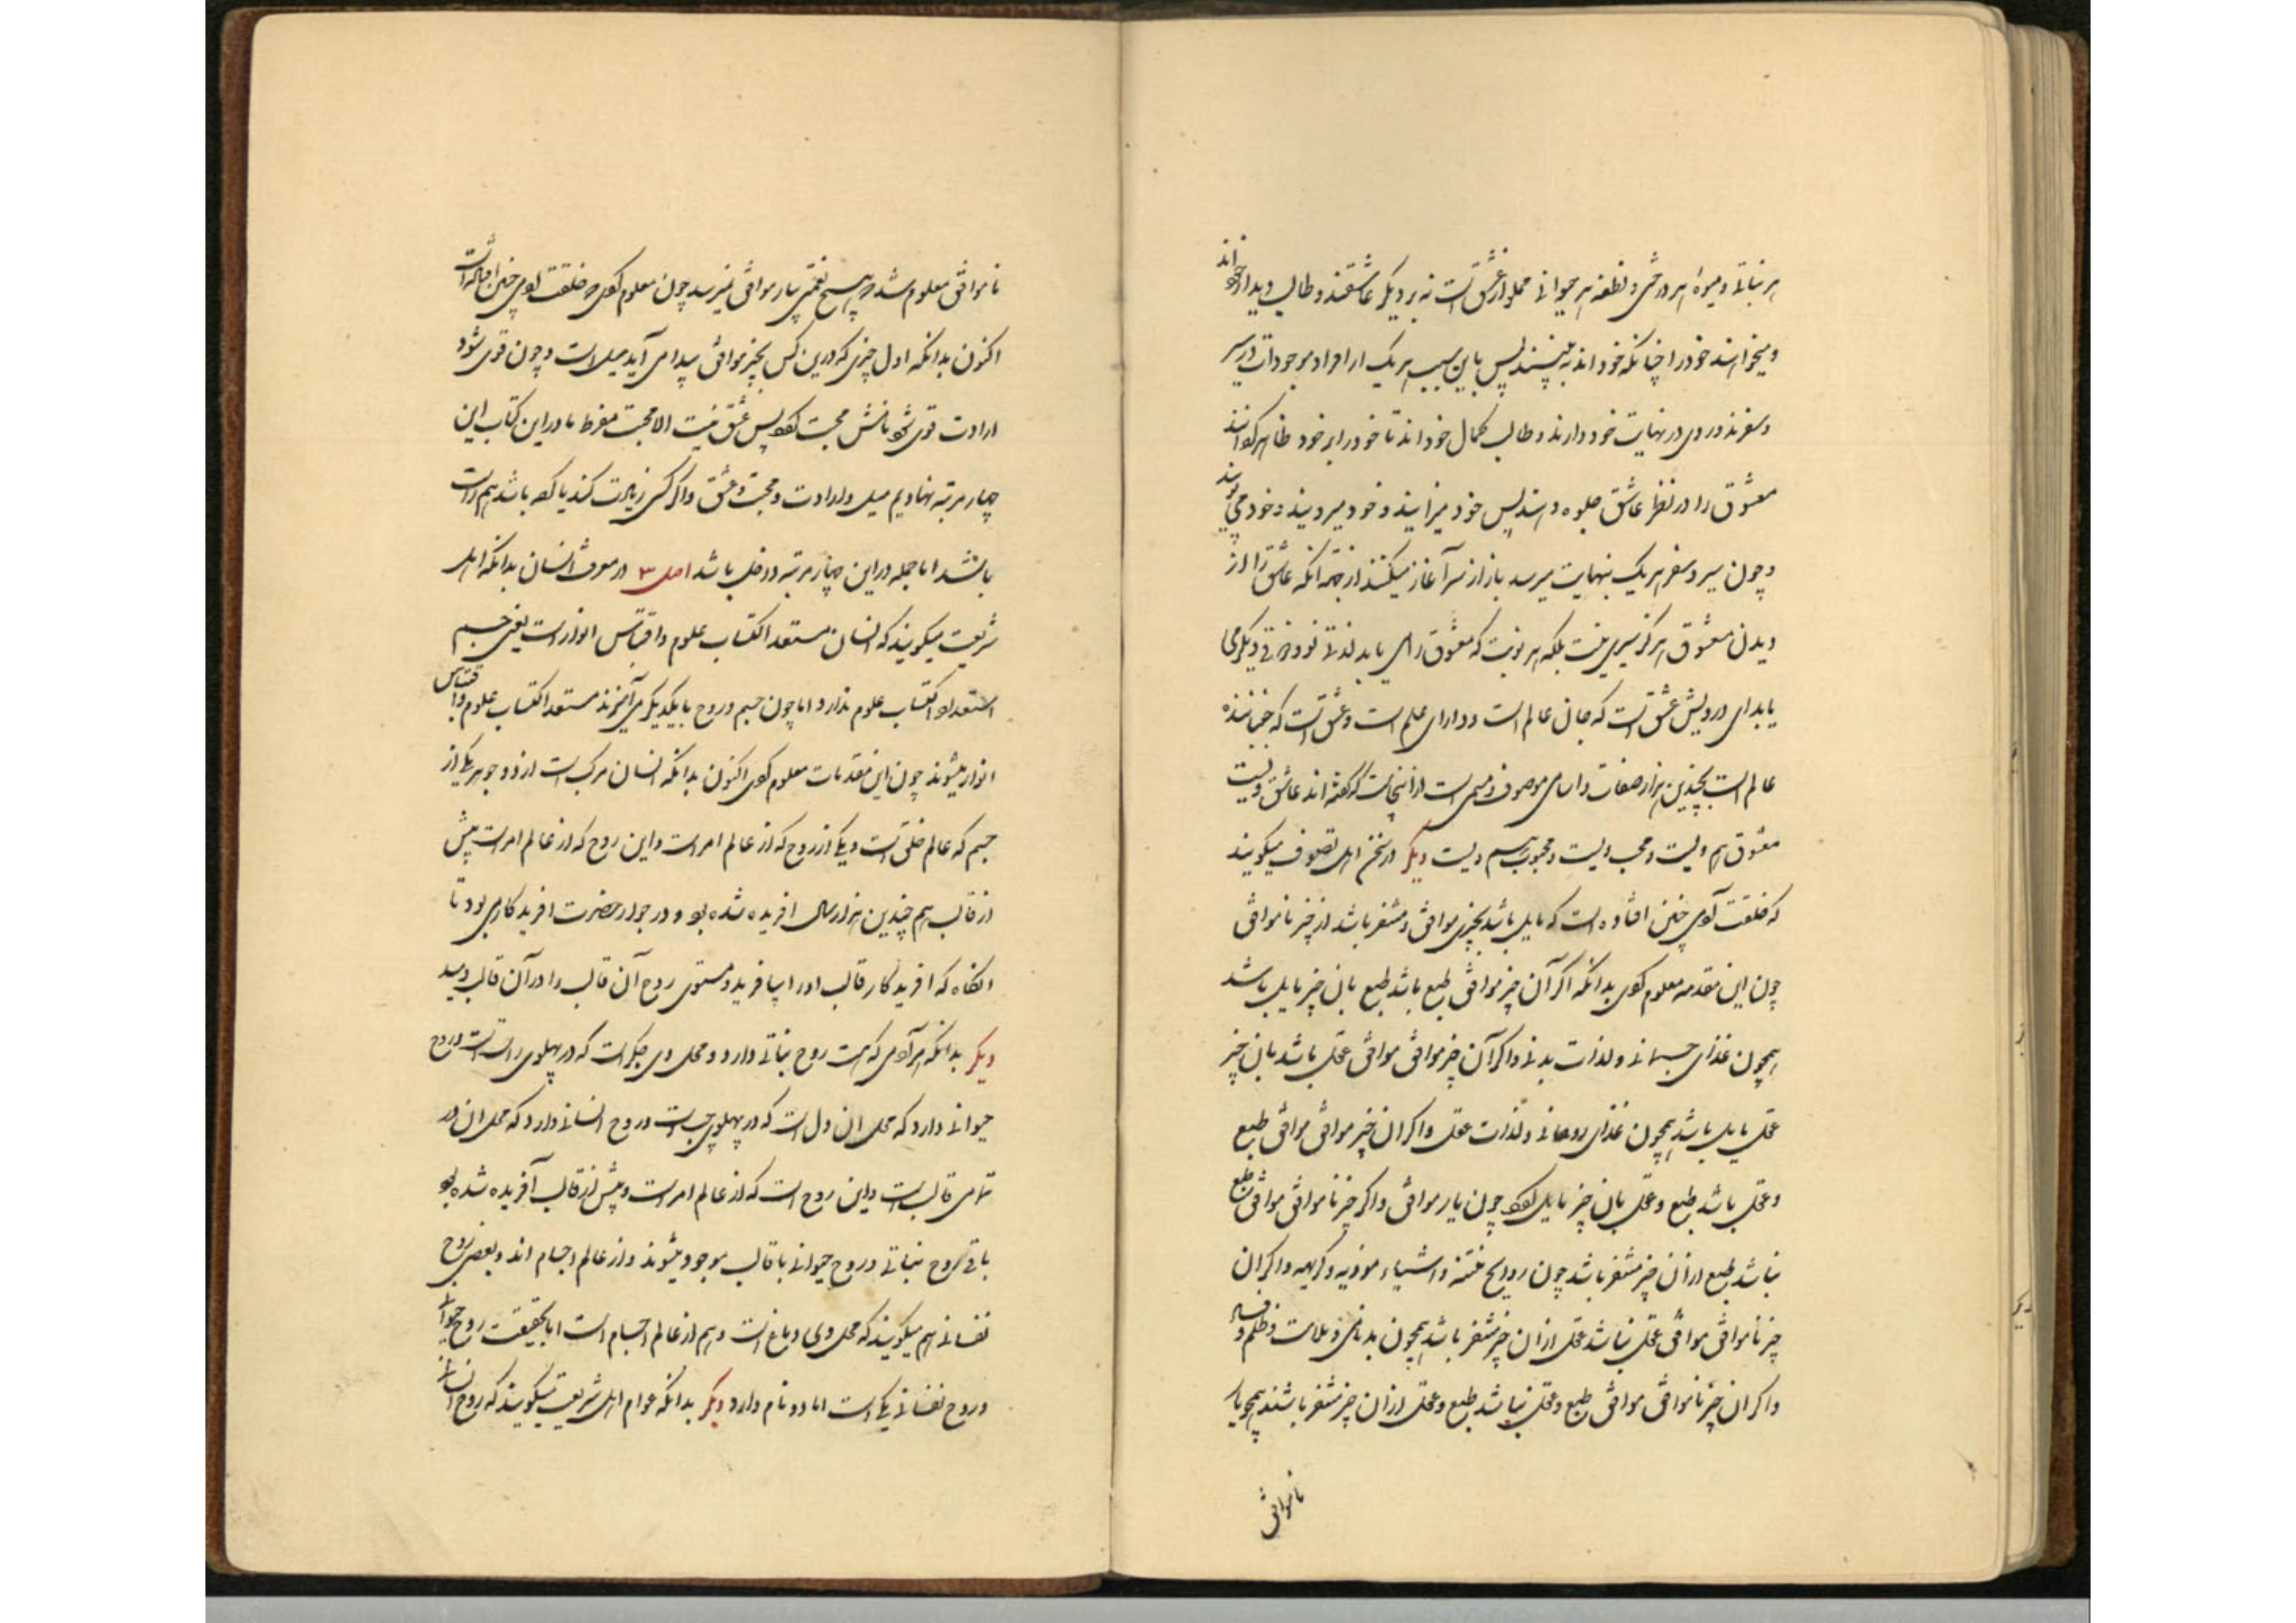 هر نباتی و میوه هر درختی و نطفه هر حیوانی مملو از عشق است نه بر دیگر عاشقند و طالب دیدار خوداند
و میخواهند خود را چنانکه خوداند به بینند پس باین سبب هر یک از افراد موجودات در سیر
و سفرند و روی در نهایت خود دارند و طالب کمال خوداند تا خود را بر خود ظاهر گردانند
معشوق را در نظر عاشق جلوه دهند پس خود میزایند و خود میرویند و خود می پویند
و چون سیر و سفر هر یک بنهایت میرسد باز از سر آغاز میکنند از جهة آنکه عاشق را از
دیدن معشوق هرگز سیری نیست بلکه هر نوبت که معشوق را می یابد لذتی نو و ذوقی دیگر می
یابد ای درویش عشق است که جان عالم است و دارای علم است و عشق است که جنباننده
عالم است بچندین هزار صفات و اسامی موصوف و مسمی است از اینجاست که گفته اند عاشق ویست
معشوق هم ویست و محب ویست و محبوب هم ویست دیگر در سخن اهل تصوف میگویند
که خلقت آدمی چنین افتاده است که مایل باشد بچیزی موافق و متنفر باشد از چیز ناموافق
چون این مقدمه معلوم کردی بدانکه اگر آن چیز موافق طبع باشد طبع بان چیز مایل باشد
همچون غذای جسمانی و لذات بدنی و اگر آن چیز موافق موافق عقل باشد بان چیز
عقل مایل باشد همچون غذای روحانی و لذات عقل و اگر ان چیز موافق موافق طبع
و عقل باشد طبع و عقل بان چیز مایل بود چون یار موافق و اگر چیز ناموافق موافق طبع
نباشد طبع از ان چیز متنفر باشد چون روایح منتنه و اشیاء موذیه و کریهه و اگر ان
چیز ناموافق موافق عقل نباشد عقل از ان چیز متنفر باشد همچون بدنامی و ملامت و ظلم و
و اگر ان چیز ناموافق موافق طبع و عقل نباشد طبع و عقل از ان چیز متنفر باشند همچو یار
ناموافق
ناموافق معلوم شد که هیچ نعمتی بیار موافق نمیرسد چون معلوم کردی که خلقت آدمی چنین افتاده است
اکنون بدانکه اول چیزی که در این کس بچیز موافق پیدا می آید میل است و چون قوی شود
ارادت قوی شود نامش محبت بود پس عشق نیست الا محبت مفرط ما در این کتاب این
چهار مرتبه نهادیم میل و ارادت و محبت و عشق و اگر کسی زیادت کند یا کم باشد هم راست
باشد اما جمله در این چهار مرتبه داخل باشد اصل ۳ در معرفت انسان بدانکه اهل
شریعت میگویند که انسان مستعد اکتساب علوم و اقتباس انوار است یعنی جسم
استعداد اکتساب علوم ندارد اما چون جسم و روح با یکدیگر می آمیزند مستعد اکتساب علوم و اقتباس
انوار میشوند چون این مقدمات معلوم کردی اکنون بدانکه انسان مرکب است از دو جوهر یکی از
جسم که عالم خلق است و یکی از روح که از عالم امر است و این روح که از عالم امر است پیش
از قالب هم چندین هزار سال افریده شده بود و در جوار حضرت افریدکار می بود تا
انگاه که افریدکار قالب او را بیافرید و مستوی روح آن قالب را در آن قالب دمید
دیگر بدانکه هر آدمی که هست روح نباتی دارد و محل وی جگر است که در پهلوی راست است و روح
حیوانی دارد که محل ان دل است که در پهلوی چپ است و روح انسانی دارد که محل ان در
تمامی قالب است و این روح است که از عالم امر است و پیش از قالب آفریده شده بود
باقی روح نباتی و روح حیوانی با قالب موجود میشوند و از عالم اجسام اند و بعضی روح
نفسانی هم میگویند که محل وی دماغ است و هم از عالم اجسام است اما بحقیقت روح حیوانی
و روح نفسانی یکی است اما دو نام دارد دیگر بدانکه عوام اهل شریعت میگویند که روح انسانی